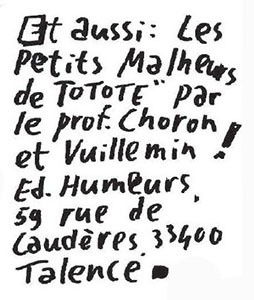 Et aussi: Les
Petits Malheurs
de TOTOTE" par
le prof. Choron
et Vuillemin!
Ed. Humeurs,
59 rue de
Caudères. 33400
Talence